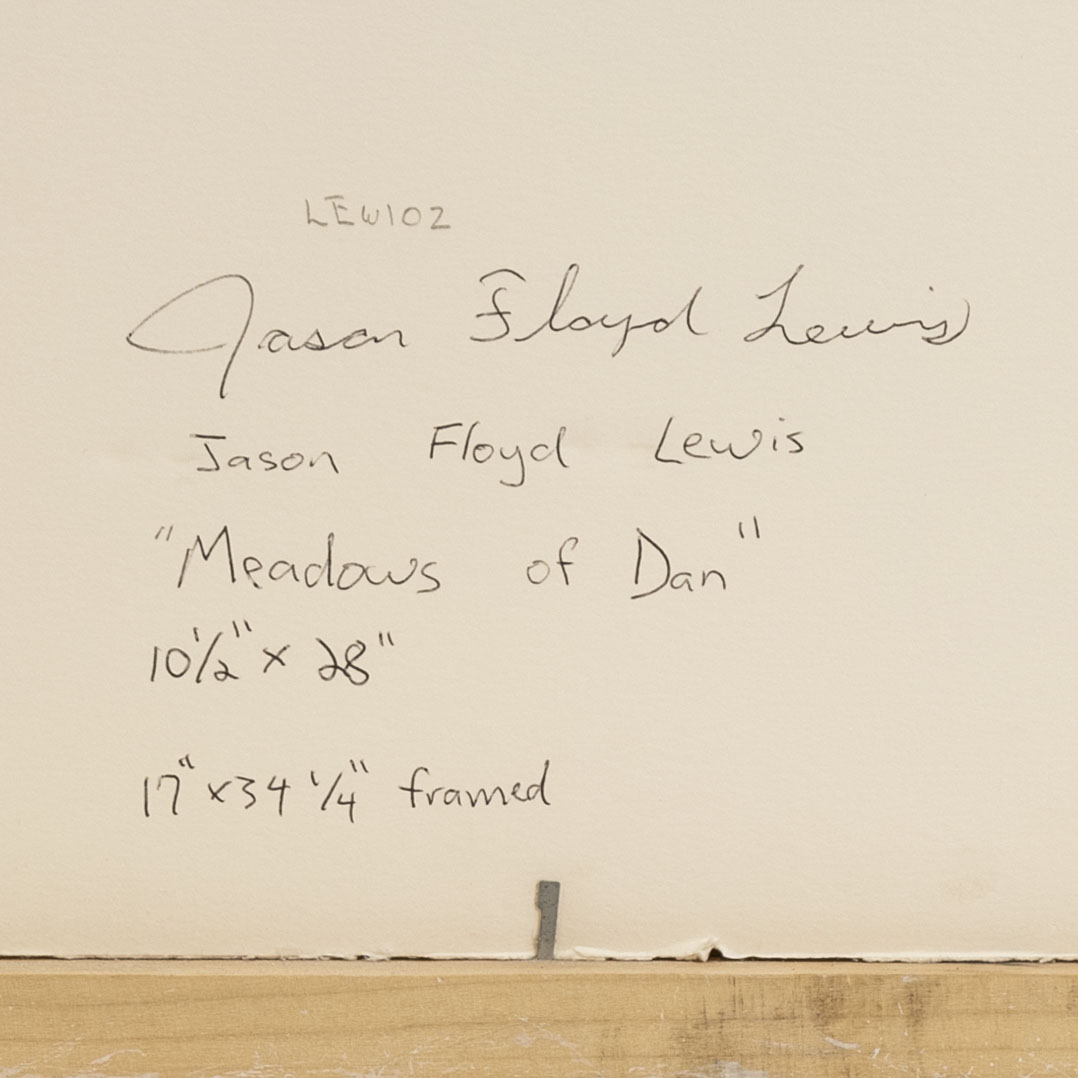 LEW102
Jason Floyd Lewis
Jason Floyd Lewis
"Meadows of Dan"
10 1/2" x 28"
17" x 34 1/4" framed